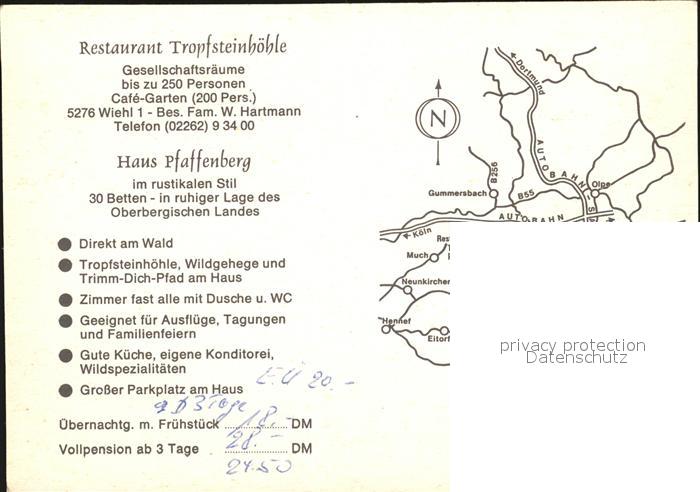 Restaurant Tropfsteinhöhle
Gesellschaftsräume
bis zu 250 Personen
Café-Garten (200 Pers.)
5276 Wiehl 1 - Bes. Fam. W. Hartmann
Telefon (02262) 9 34 00
Haus Pfaffenberg
im rustikalen Stil
30 Betten - in ruhiger Lage des
Oberbergischen Landes
Direkt am Wald
Tropfsteinhöhle, Wildgehege und
Trimm-Dich-Pfad am Haus
Zimmer fast alle mit Dusche u. WC
Geeignet für Ausflüge, Tagungen
und Familienfeiern
Gute Küche, eigene Konditorei,
Wildspezialitäten
Großer Parkplatz am Haus
EÜ 20.-
3 Tage
Übernachtg. m. Frühstück 18,- DM
Vollpension ab 3 Tage 28.- DM
24.50
Dortmund
N
AUTOBAHN
B256
Gummersbach
B55
Olpe
AUTOBAHN
Köln
Res
Much
Neunkirchen
Hennef
Eitorf
privacy protection
Datenschutz